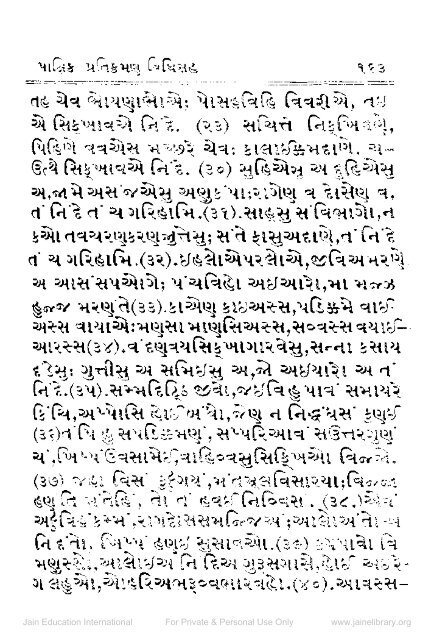 પાક્ષિક પ્રતિક્રમણ વિધિસહ ૧૬૩
તહ ચેવ ભોયણાભોએ; પોસહવિહિ વિવરીએ, તઇ
એ સિક્ખાવએ નિંદે. (૨૩) સચિત્તે નિક્ખિવણે,
પિહિણે વવએસ મચ્છરે ચેવ; કાલાઇક્કમદાણે. ચ-
ઉત્થે સિક્ખાવએ નિંદે. (૩૦) સુહિએસુ અ દૂહિએસુ
અ,જામે અસંજએસુ અણુકંપા;રાગેણ વ દોસેણ વ,
તં નિંદે તં ચ ગરિહામિ.(૩૧).સાહૂસુ સંવિભાગો,ન
કઓ તવચરણકરણજુત્તેસુ; સંતે ફાસુઅદાણે,તં નિંદે
તં ચ ગરિહામિ.(૩૨).ઇહલોએપરલોએ,જીવિઅમરણે
અ આસંસપઓગે; પંચવિહો અઇઆરો,મા મજ્ઝ
હુજ્જ મરણંતે(૩૩).કાએણ કાઇઅસ્સ,પડિક્કમે વાઈ-
અસ્સ વાયાએ;મણસા માણસિઅસ્સ,સવ્વસ્સ વયાઈ-
આરસ્સ(૩૪).વંદણવયસિક્ખાગારવેસુ,સન્ના કસાય
દંડેસુ; ગુત્તીસુ અ સમિઇસુ અ,જો અઇયારો અ તં
નિંદે.(૩૫).સમ્મદિટ્ઠિ જીવો,જઇવિહુ પાવં સમાયરે
કિંચિ,અપ્પોસિ હોઈ બંધો,જેણ ન નિદ્ધંધસં કુણઈ
(૩૬)તં પિ હુ સપડિક્કમણં, સપ્પરિઆવં સઉત્તરગુણં
ચ,ખિપ્પં ઉવસામેઈ,વાહિવ્વસુસિક્ખિઓ વિજ્જો.
(૩૭) જહા વિસં કુટ્ઠગયં,મંતમૂલવિસારયા;વિજ્જા
હણંતિ મંતેહિં, તો તં હવઈ નિવ્વિસં. (૩૮.)એવં
અટ્ઠવિહંકમ્મં,રાગદોસસમજ્જિઅં;આલોઅંતોઅ
નિંદંતો. ખિપ્પં હણઇ સુસાવઓ.(૩૯) કયપાવો વિ
મણુસ્સો,આલોઇઅ નિંદિઅ ગુરુસગાસે,હોઈ અઇરે-
ગ લહુઓ,ઓહરિઅભરૂવ્વભારવહો.(૪૦).આવસ્સ-
Jain Education International For Private & Personal Use Only www.jainelibrary.org